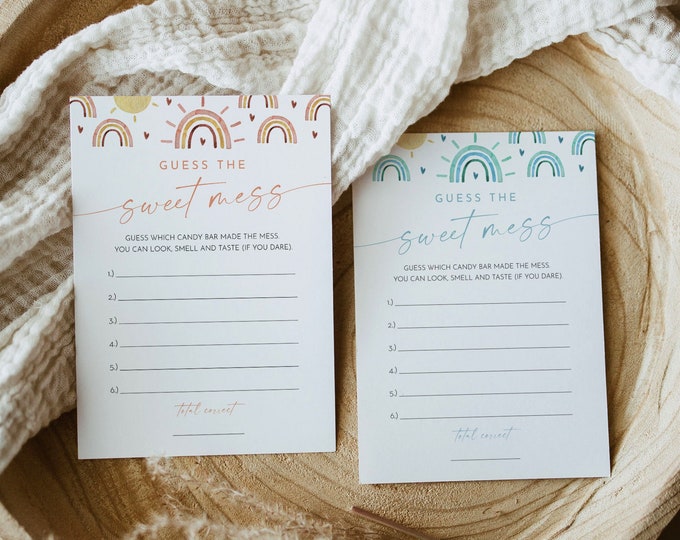 GUESS THE
sweet mess
GUESS WHICH CANDY BAR MADE THE MESS.
YOU CAN LOOK, SMELL AND TASTE (IF YOU DARE).
1.)
2.)
3.)
4.)
5.)
6.)
total correct
GUESS THE
sweet mess
GUESS WHICH CANDY BAR MADE THE MESS.
YOU CAN LOOK, SMELL AND TASTE (IF YOU DARE).
1.)
2.)
3.)
4.)
5.)
6.)
total correct